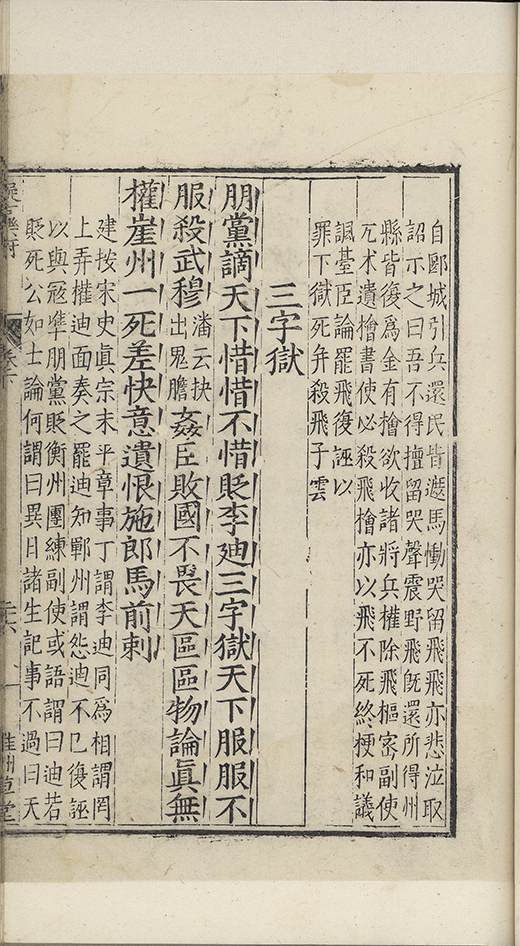 自郾城引兵還民皆遮馬慟哭留飛飛亦悲泣取
詔示之曰吾不得擅留哭聲震野飛既還所得州
縣皆復爲金有檜欲收諸將兵權除飛樞密副使
兀术遺檜書使必殺飛檜亦以飛不死終梗和議
諷臺臣論罷飛復誣以
罪下獄死幷殺飛子雲
三字獄
朋黨謫天下惜惜不惜貶李廸三字獄天下服服不
服殺武穆潘云抉出鬼膽姦臣敗國不畏天區區物論眞無
權崖州一死差快意遺恨施郎馬前刺
建按宋史眞宗末平章事丁謂李迪同爲相謂罔
上弄權迪面奏之罷迪知鄆州謂怨迪不已復誣
以與冦凖朋黨貶衡州團練副使或語謂曰迪若
貶死公如士論何謂曰異日諸生記事不過曰天
卷下